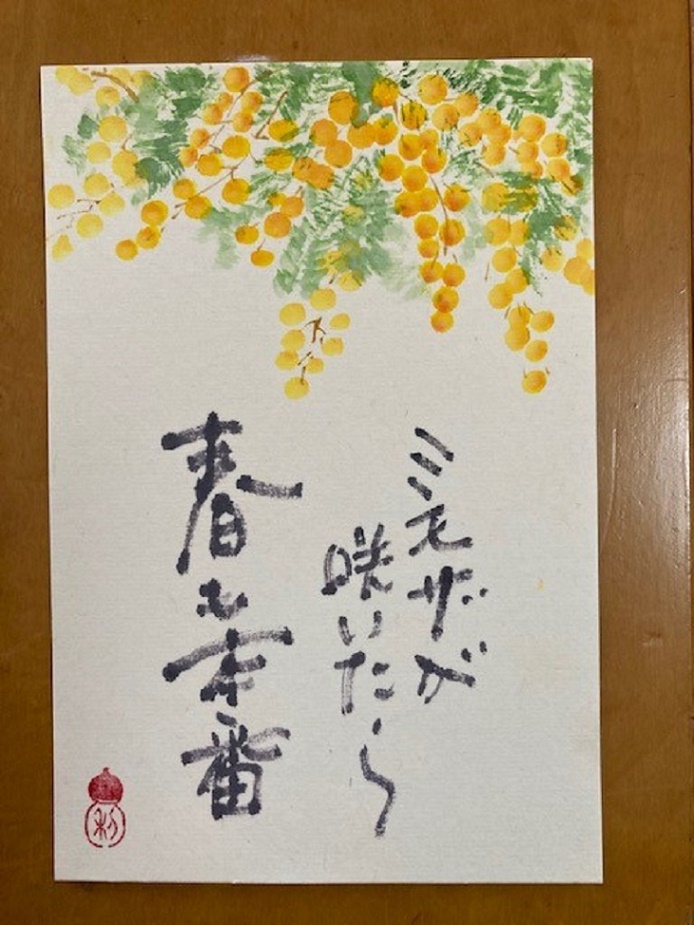 ミモザが
咲いたら
春も本番